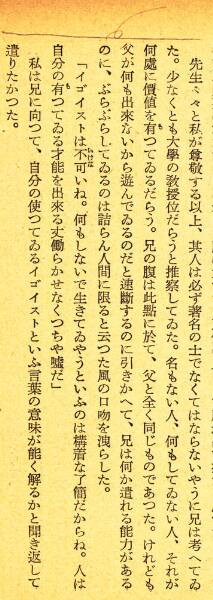 先生々々と私が尊敬する以上、其人は必ず著名の士でなくてはならないやうに兄は考へてゐ
た。少なくとも大學の教授位だらうと推察してゐた。名もない人、何もしてゐない人、それが
何處に價値を有つてゐるだらう。兄の腹は此點に於て、父と全く同じものであつた。けれども
父が何も出來ないから遊んでゐるのだと速斷するのに引きかへて、兄は何か遣れる能力がある
のに、ぶらぶらしてゐるのは詰らん人間に限ると云つた風の口吻を洩らした。
「イゴイストは不可いね。何もしないで生きてゐやうといふのは横着な了簡だからね。人は
自分の有つてゐる才能を出來る丈働らかせなくつちや嘘だ」
私は兄に向つて、自分の使つてゐるイゴイストといふ言葉の意味が能く解るかと聞き返して
遣りたかつた。